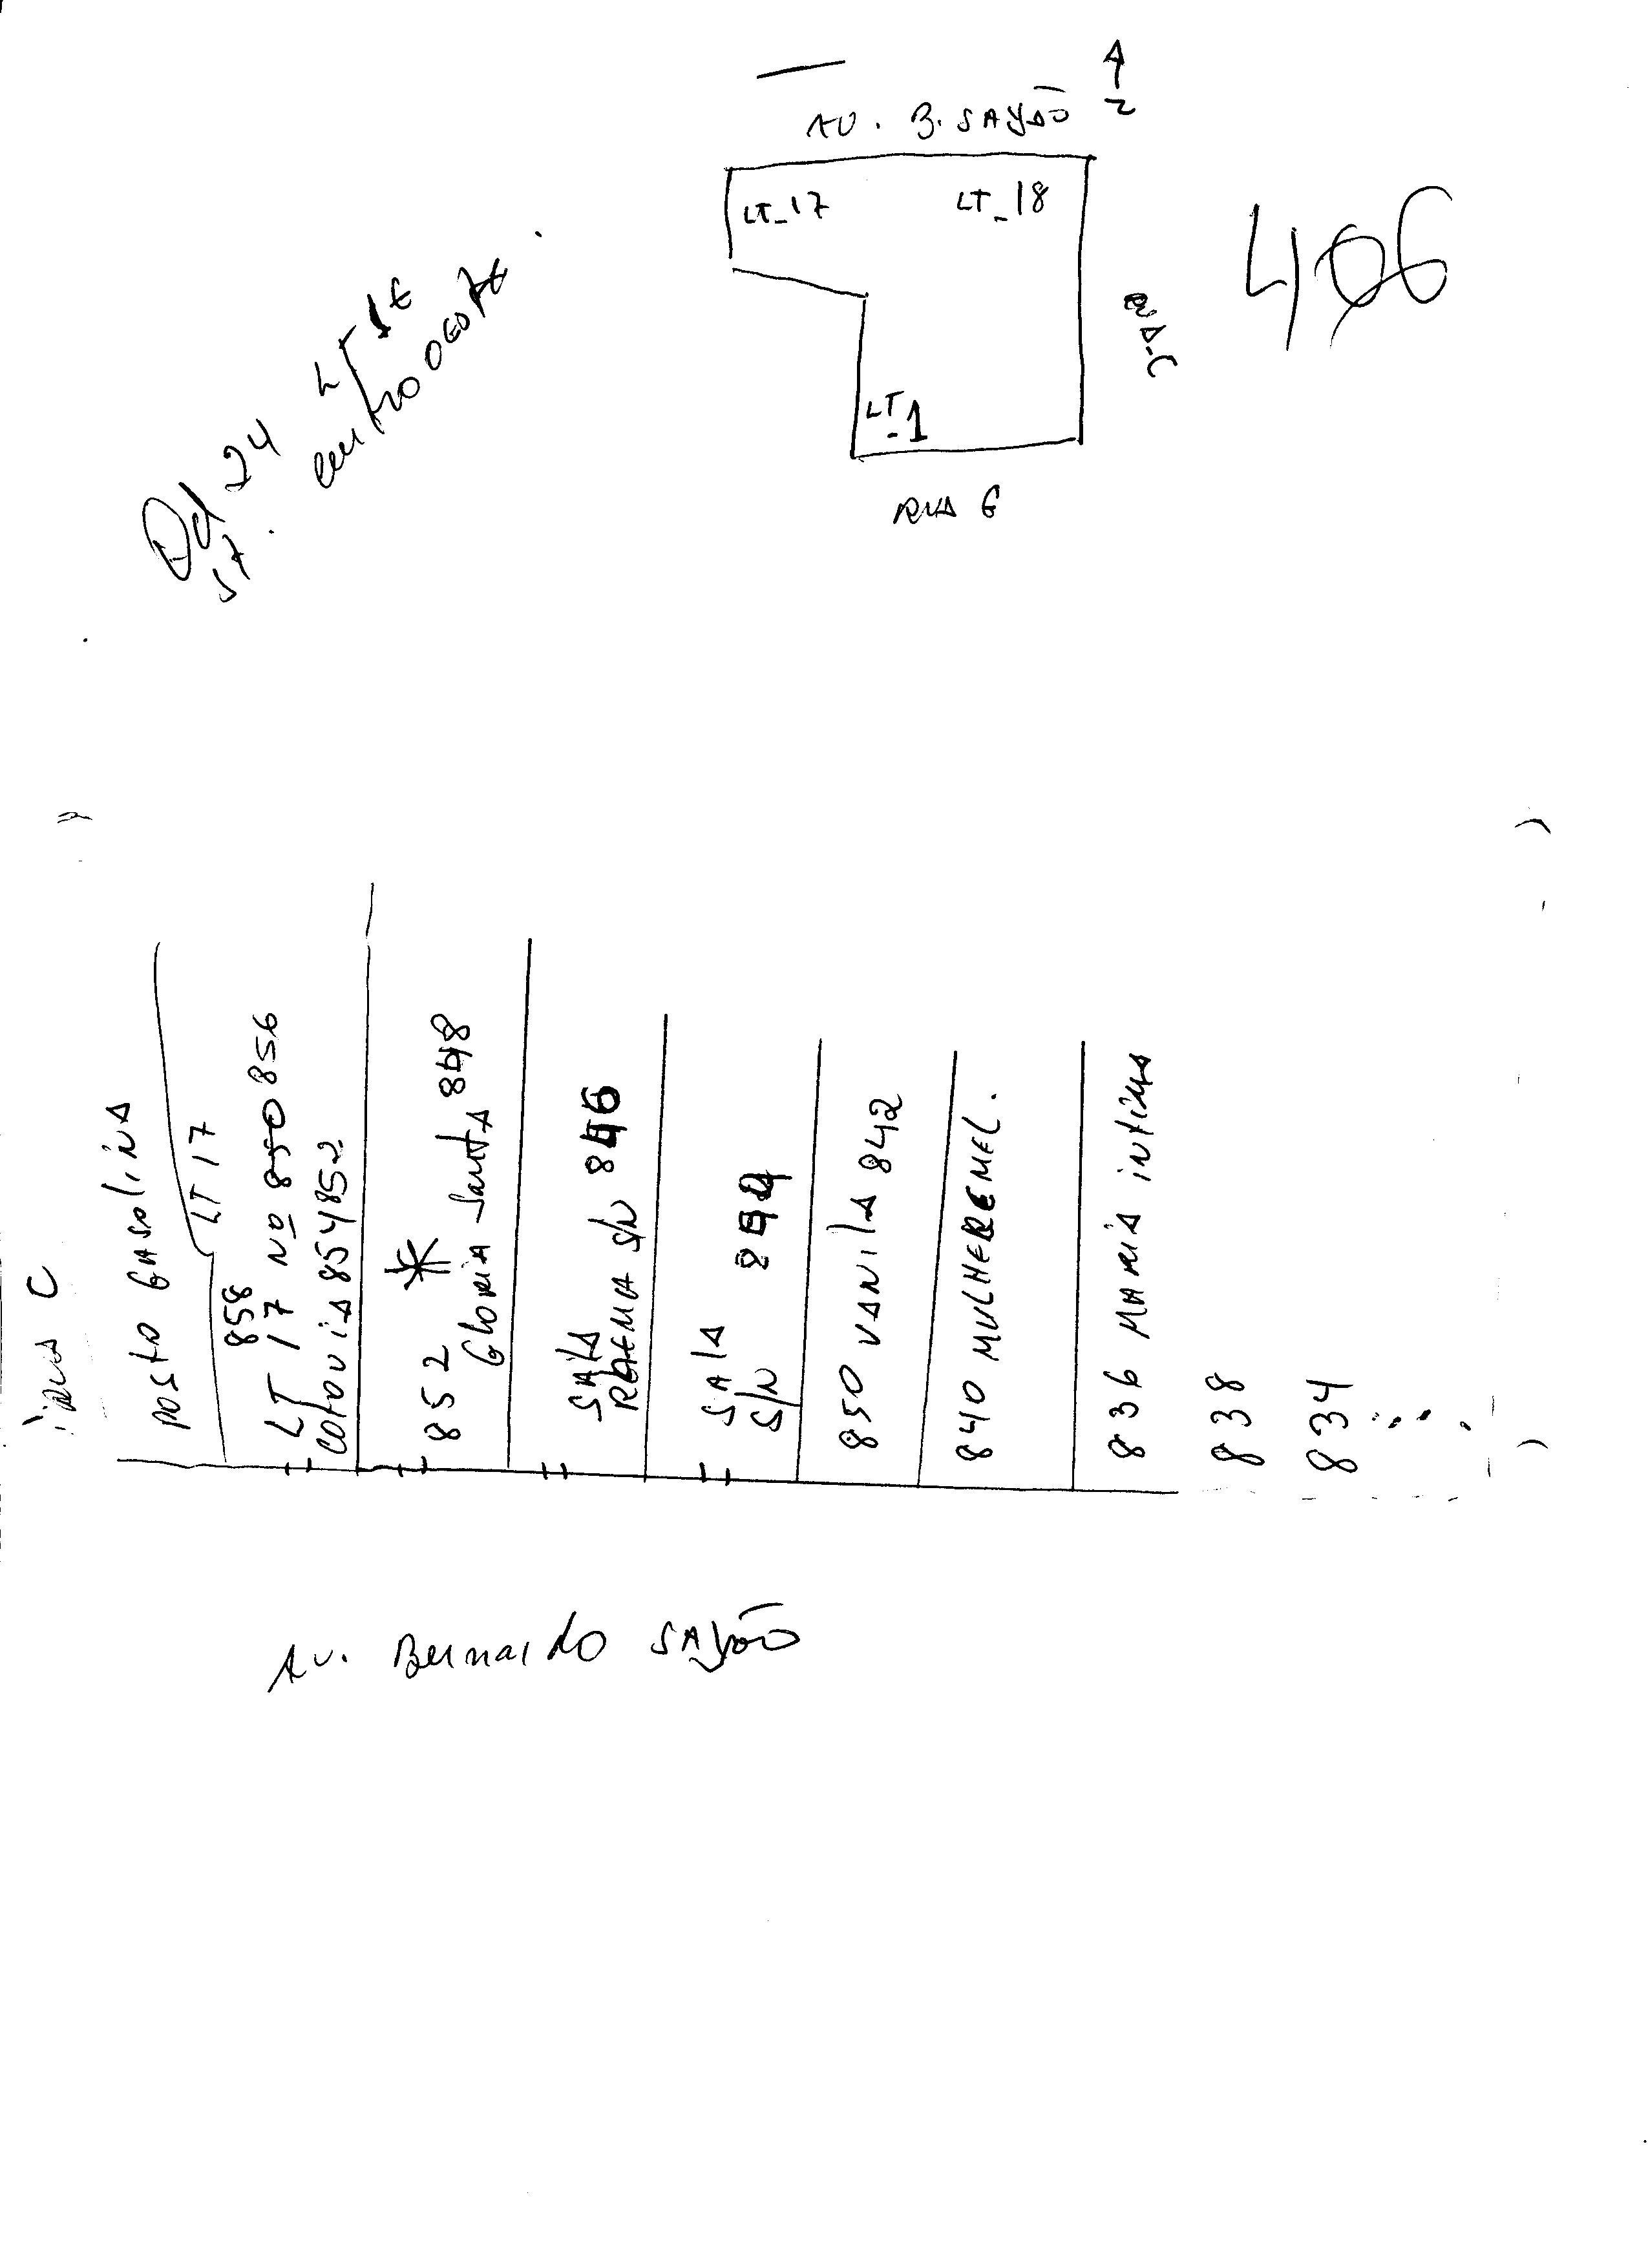 AV. B. SAYÃO
LT-17
LT-18
RUA-C
LT-1
RUA G
406
Qd 24 LT
St. Centro Oeste
RUA C
POSTO GASOLINA
LT 17
858
LT 17 Nº 850 856
COTOVIA 854 852
852
GLORIA Santa 848
SALA
S/N 846
SALA
S/N 844
850 VANILA 842
840 MULHER E MEL.
836 MARIA INTIMA
838
834
Av. Bernardo SAYÃO